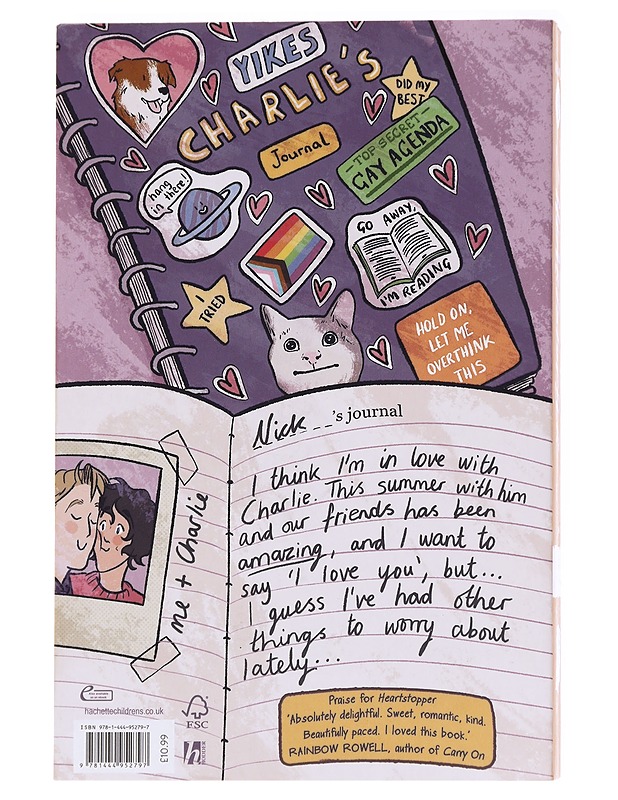 YIKES
CHARLIE'S
Journal
DID MY
BEST
TOP SECRET
GAY AGENDA
hang
in there!
GO AWAY,
I'M READING
I
TRIED
HOLD ON,
LET ME
OVERTHINK
THIS
Nick's journal
I think I'm in love with
Charlie. This summer with him
and our friends has been
amazing, and I want to
say 'I love you', but...
I guess I've had other
things to worry about
lately...
me + Charlie
hachettechildrens.co.uk
FSC
ISBN 978-1-444-95279-7
9 781444 952797
£10.99
h
Praise for Heartstopper
'Absolutely delightful. Sweet, romantic, kind.
Beautifully paced. I loved this book.'
RAINBOW ROWELL, author of Carry On